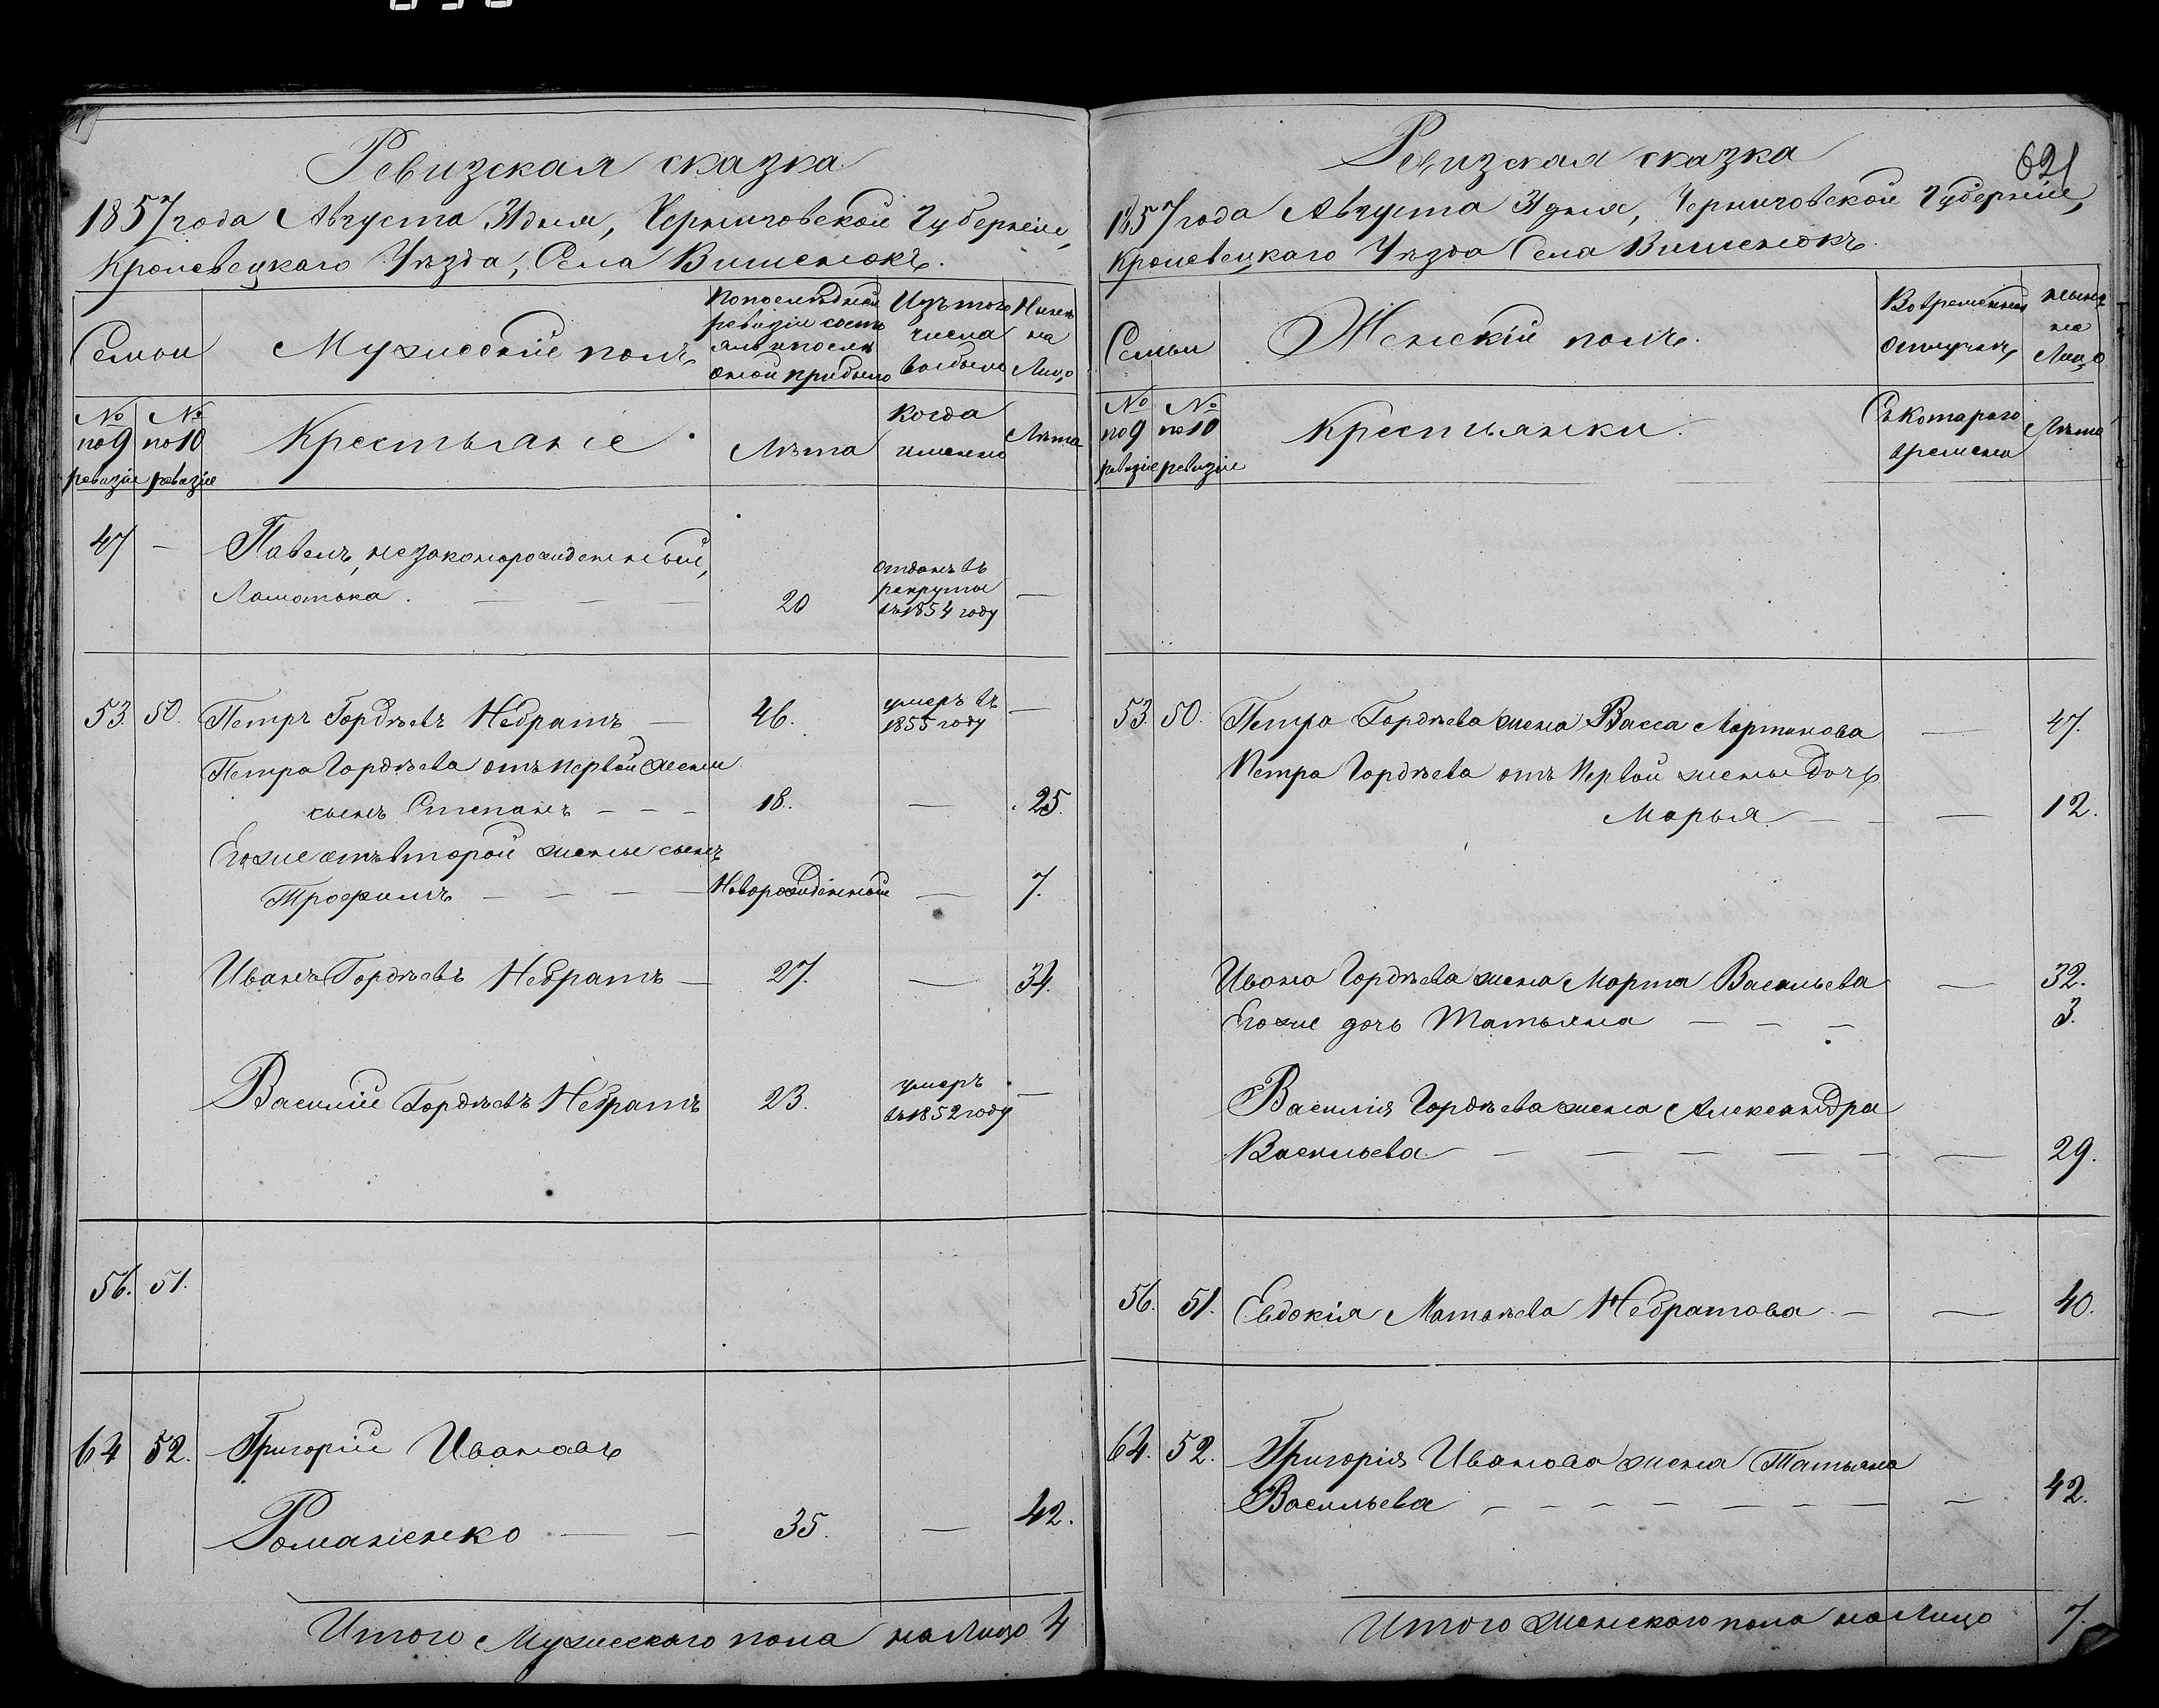 Ревизская сказка
1857 года Августа 31 дня, Черниговской Губерніи,
Кролевецкаго Уѣзда, Села Вишенокъ.
Семьи
Мужескій полъ
По последней
ревизіи состо
яло и после
оной прибыло
Изъ того
числа
выбыло
Ныне
на
Лицо
№
по 9
ревизіи
№
по 10
ревизіи
Крестьяніе
Лѣта
Когда
именно
Лѣта
47 —
Павелъ, незаконорожденный,
Ламотька — — — 20
отданъ въ
рекруты
въ 1854 году
—
53. 50. Петръ Гордѣевъ Небратъ — 46.
умеръ въ
1855 году
—
Петра Гордѣева отъ первой жены
сынъ Степанъ — — — 18. — 25.
Его же отъ второй жены сынъ
Трофимъ — — — — Новорожденный — 7.
Иванъ Гордѣевъ Небратъ — 27. — 34.
Василій Гордѣевъ Небратъ 23.
умеръ
въ 1852 году
—
56. 51.
64 52. Григорій Ивановъ
Романенко — — 35. — 42.
Итого Мужескаго пола на Лицо 4
621
Ревизская сказка
1857 года Августа 31 дня, Черниговской Губерніи,
Кролевецкаго Уѣзда Села Вишенокъ.
Семьи
Женскій полъ.
Во временной
отлучкѣ,
ныне
на
Лицо
№
по 9
ревизіи
№
по 10
ревизіи
Крестьянки.
Съ котораго
времени
Лѣта
53. 50. Петра Гордѣева жена Васса Мартинова — 47.
Петра Гордѣева отъ Первой жены дочь
Марья — — — 12.
Ивана Гордѣева жена Марта Васильева — 32.
Его же дочь Татьяна — — — 3.
Василія Гордѣева жена Александра
Васильева — — — — — — 29.
56. 51. Евдокія Матвѣева Небратова — — 40.
64. 52. Григорія Иванова жена Татьяна
Васильева — — — — — — — — 42.
Итого женскаго пола на Лицо 7.